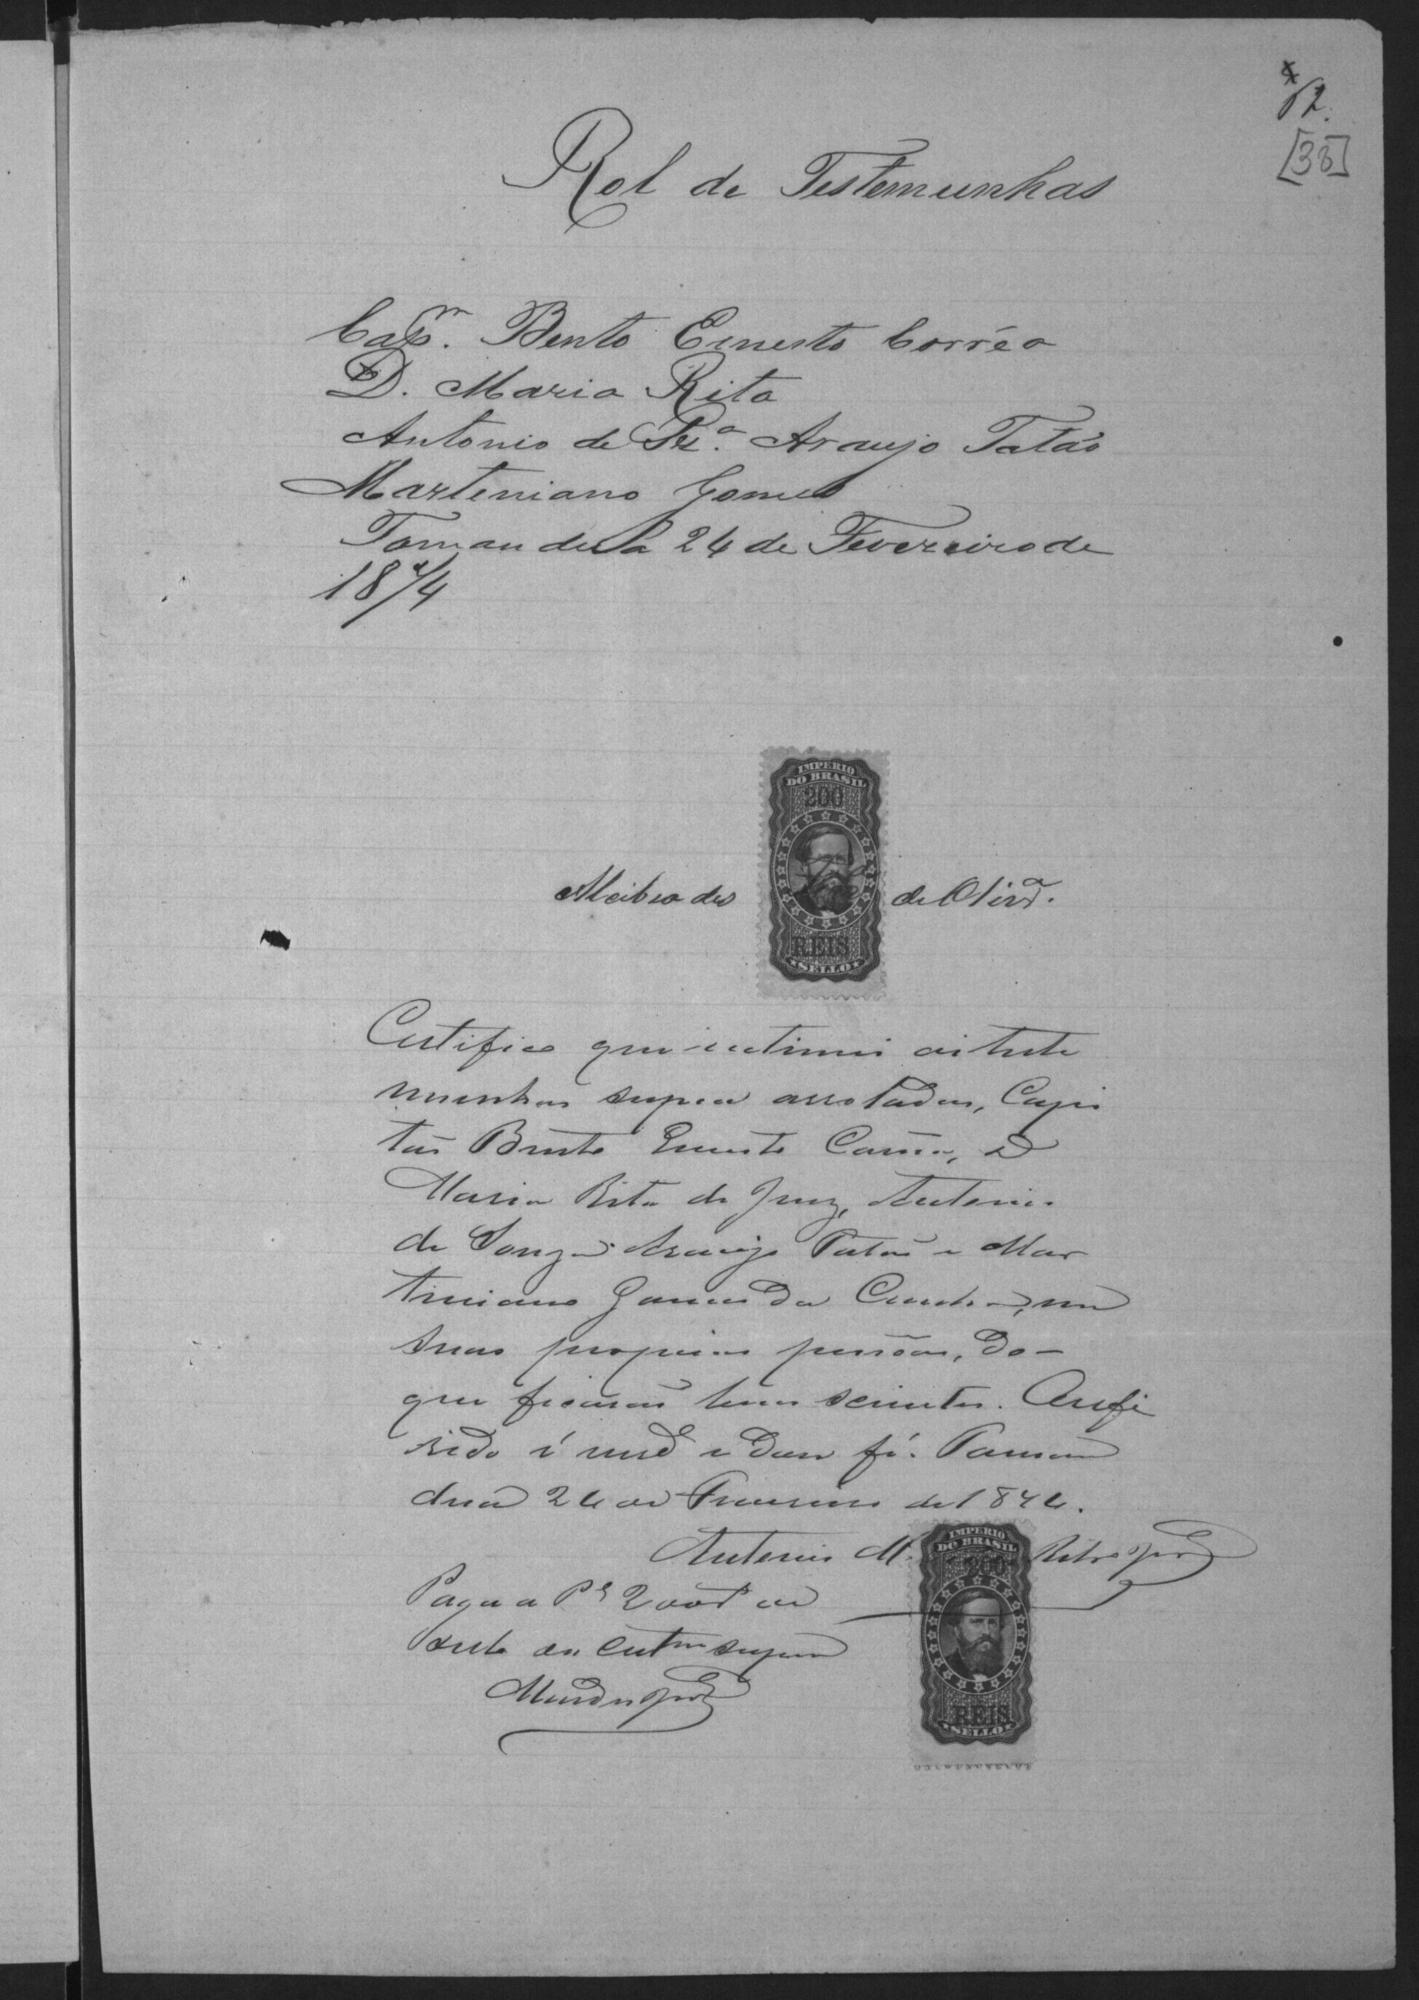 12.
[38]
Rol de Testemunhas
Capm. Bento Ernesto Corrêa
D. Maria Rita
Antonio de Sza. Araujo Tatão
Marteniano Gomes
Tamanduá 24 de Fevereiro de
1874
IMPERIO
DO BRASIL
200
Alcibiades de Olivra.
REIS
SELLO
Certifico que intimei as teste
munhas supra arroladas, Capi
tão Bento Ernesto Corrêa, D
Maria Rita de Jesus, Antonio
de Souza Araujo Tatão e Mar
tiniano Gomes da Cunha, em
suas proprias pessôas, do
que ficarão bem scientes. O refe
rido é verde e dou fé. Taman
duá 24 de Fevereiro de 1874.
IMPERIO
DO BRASIL
200
Antonio M.
Pagou a Pe 200rs de
sello da Certam supra
REIS
SELLO